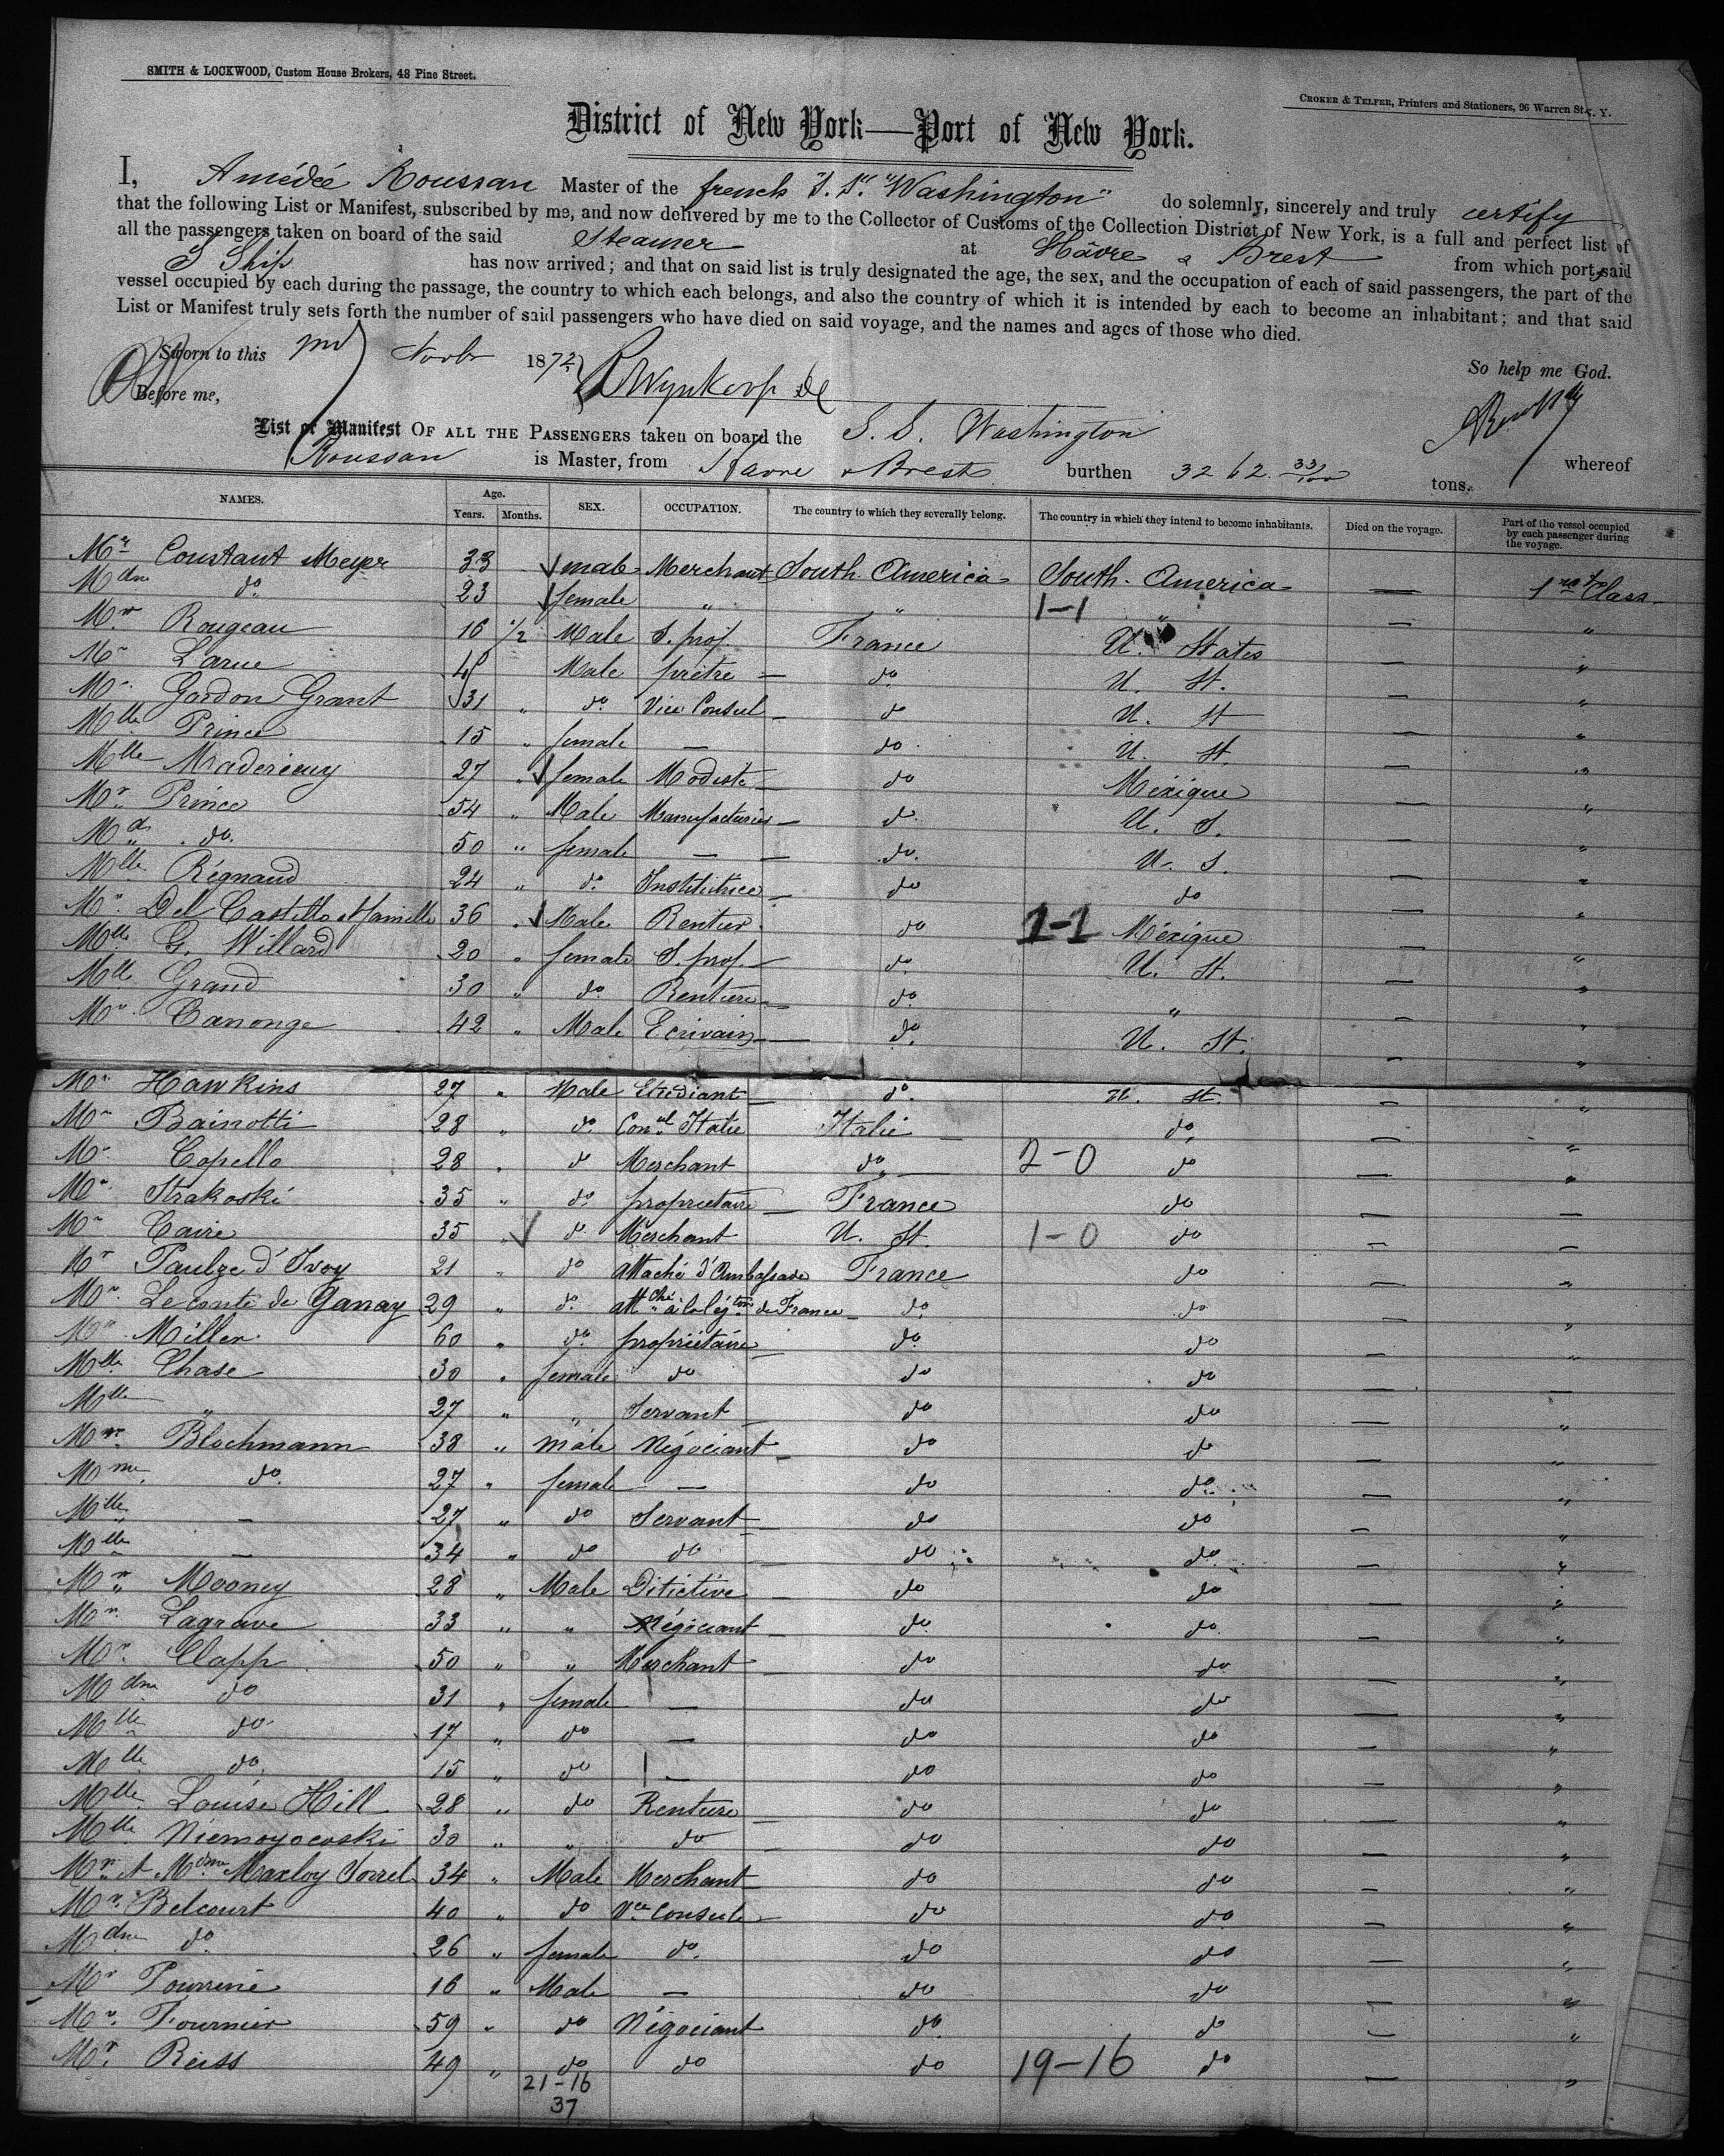 SMITH & LOCKWOOD, Custom House Brokers, 48 Pine Street.
CROKER & TELFER, Printers and Stationers, 96 Warren St. N. Y.
District of New York—Port of New York.
I, Amédée Roussan Master of the french "S. S." "Washington" do solemnly, sincerely and truly certify
that the following List or Manifest, subscribed by me, and now delivered by me to the Collector of Customs of the Collection District of New York, is a full and perfect list of
all the passengers taken on board of the said Steamer at Hâvre & Brest from which port, said
S Ship has now arrived; and that on said list is truly designated the age, the sex, and the occupation of each of said passengers, the part of the
vessel occupied by each during the passage, the country to which each belongs, and also the country of which it is intended by each to become an inhabitant; and that said
List or Manifest truly sets forth the number of said passengers who have died on said voyage, and the names and ages of those who died.
Sworn to this Novbr 1872
So help me God.
Before me,
List or Manifest OF ALL THE PASSENGERS taken on board the S. S. Washington whereof
Roussan is Master, from Havre & Brest burthen 3262 33/100 tons.
NAMES. Age. Years. Months. SEX. OCCUPATION. The country to which they severally belong. The country in which they intend to become inhabitants. Died on the voyage. Part of the vessel occupied by each passenger during the voyage.
Mr Constant Meyer 33 male Merchant South America South America — 1re Class
Mdm do 23 female " " 1-1 " — "
Mr Rougeau 16 1/2 Male S. prof. France U. States — "
Mr Larue Male prêtre — do U. St. — "
Mr Gordon Grant 31 " do Vice Consul — do U. St — "
Mlle Prince 15 " female — do U. St. — "
Mlle 27 " female Modiste — do Méxique — "
Mr Prince 54 " Male Manufacturier — do U. S. — "
Md do 50 " female — do. U. S. — "
Mlle Régnaud 24 " do Institutrice — do do — "
Mr Del Castillo et famille 36 " Male Rentier do 1-1 Méxique — "
Mlle G. Willard 20 " female S. prof. — do. U. St. — "
Mlle Grand 30 " do Rentiere — do " — "
Mr Canonge 42 " Male Ecrivain — do. U. St. — "
Mr Hawkins 27 " Male Etudiant — do. U. St. — "
Mr Bainotti 28 " do Conul Italie Italie — do. — "
Mr Copello 28 " do Merchant do — 2-0 do — "
Mr Strakoski 35 " do proprietaire — France do — —
Mr Caire 35 " do Merchant U. St. 1-0 do — —
Mr Paulze d'Ivoy 21 " do attaché d'Ambassade France do — "
Mr Le conte de Ganay 29 " do attché à la légtion de France — do do — "
Mr Miller 60 " do propriétaire — do do — "
Mlle Chase 30 " female do do do — —
Mlle " 27 " " Servant — do do — "
Mr Blochmann 38 " male Négociant — do do — "
Mme do. 27 " female — do do — "
Mlle — 27 " do Servant — do do — "
Mlle — 34 " do do — do do — "
Mr Mooney 28 " Male Ditictive — do do — "
Mr Lagrave 33 " " Négociant — do do — "
Mr Clapp 50 " " Merchant — do do — "
Mdm do 31 " female — do do — "
Mlle do 17 " do — do do — "
Mlle do. 15 " do — do do — "
Mlle Louise Hill 28 " do Rentiere — do do — "
Mlle Niemoyocoski 30 " " do — do do — "
Mr et Mdme Maxloy Sorrel 34 " Male Merchant do do — "
Mr Belcourt 40 " do Vce Consule do do — "
Mdm do 26 " female do. do do — "
Mr 16 " Male — do do — "
Mr Fournier 59 " do Négociant do do — "
Mr Reiss 49 " do do do 19-16 do — "
21-16
37